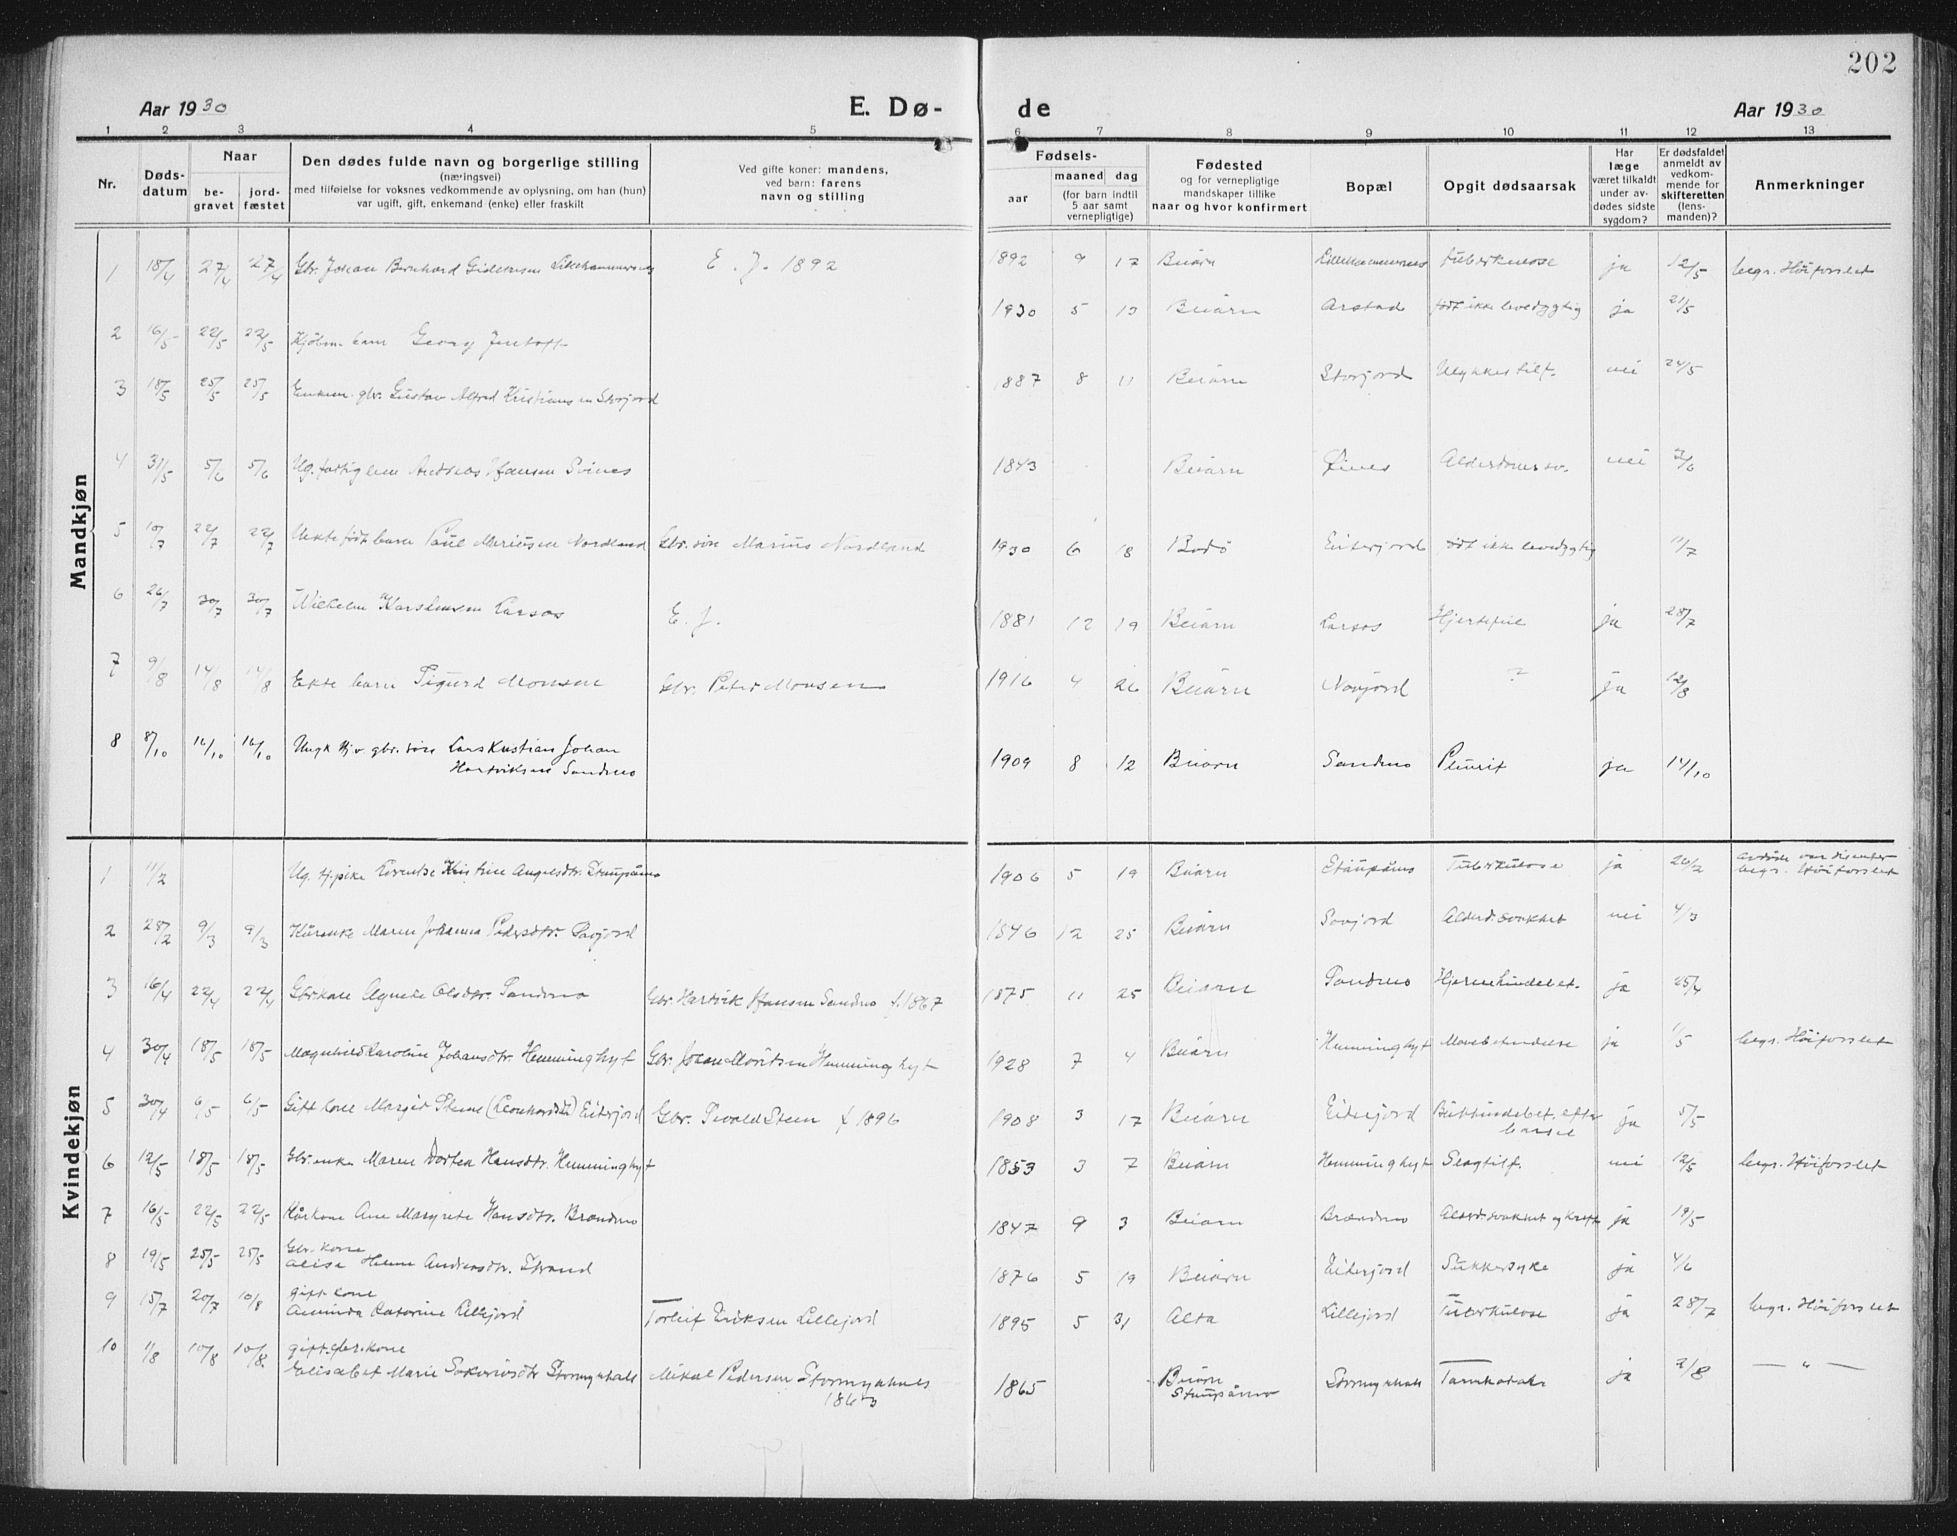 202
Aar 1930 E. Dø- de Aar 1930
1 2 3 4 5 6 7 8 9 10 11 12 13
Nr.
Døds-
datum
Naar
be-
gravet
jord-
fæstet
Den dødes fulde navn og borgerlige stilling
(næringsvei)
med tilføielse for voksnes vedkommende av oplysning, om han (hun)
var ugift, gift, enkemand (enke) eller fraskilt
Ved gifte koner: mandens,
ved barn: farens
navn og stilling
Fødsels-
aar
maaned dag
(for barn indtil
5 aar samt
vernepligtige)
Fødested
og for vernepligtige
mandskaper tillike
naar og hvor konfirmert
Bopæl
Opgit dødsaarsak
Har
læge
været tilkaldt
under av-
dødes sidste
sygdom?
Er dødsfaldet
anmeldt av
vedkom-
mende for
skifteretten
(lens-
manden)?
Anmerkninger
Mandkjøn
1 18/4 27/4 27/4 Gbr. Johan Bernhard E. J. 1892 1892 9 17 Beiarn tuberkulose ja 12/5 begr. Høiforslet
2 16/5 22/5 22/5 barn Georg Jentoft 1930 5 13 Beiarn Arstad født ikke levedygtig ja 21/5
3 18/5 25/5 25/5 Enkem. gbr. Gustav Alfred Kristiansen Storjord 1887 8 11 Beiarn Storjord Ulykkestilf. nei 24/5
4 31/5 5/6 5/6 Ug. fattiglem Andreas Hansen 1843 Beiarn nei 3/6
5 10/7 22/7 22/7 Uekte født barn Paul Meriusen Nordland Gbr. søn Marius Nordland 1930 6 18 Bodø Eiterjord født ikke levedygtig 11/7
6 26/7 30/7 30/7 Wilhelm Karstensen Larsos E. J. 1881 12 19 Beiarn Larsos Hjertefeil ja 28/7
7 9/8 14/8 14/8 Ekte barn Sigurd Monsen Gbr. Peter Monsen 1916 4 26 Beiarn Novjord ? ja 12/8
8 8/10 16/10 16/10 gbr. søn Lars Kristian Johan
Hartviksen Sandmo 1909 8 12 Beiarn Sandmo Pleurit ja 14/10
Kvindekjøn
1 11/2 Ug. tj.pike Lorentse Kristine 1906 5 19 Beiarn Tuberkulose ja 26/2 avdøde var disenter
begr. Høiforslet
2 28/2 9/3 9/3 Maren Johanna Pedersdtr. Savjord 1846 12 25 Beiarn Savjord Alderd.svakhet nei 4/3
3 16/4 22/4 22/4 Gbr.kone Agnete Olsdtr. Sandmo Gbr. Hartvik Hansen Sandmo f. 1867 1875 11 25 Beiarn Sandmo Hjernehindebet. ja 25/4
4 30/4 18/5 18/5 Magnhild Karoline Johansdtr. Hemminghyt Gbr. Johan Moritsen Hemminghyt 1928 7 4 Beiarn Hemminghyt ja 1/5 begr. Høiforslet
5 30/4 6/5 6/5 Gift kone Margit Steene Eiterjord Gbr. Sivald Steen f 1896 1908 3 17 Beiarn Eiterjord Bukhindebet. efter
barsel ja 5/5
6 12/5 18/5 18/5 Gbr. enke Maren Dortea Hansdtr. Hemminghyt 1853 3 7 Beiarn Hemminghyt Slagtilf. nei 12/5 begr. Høiforslet
7 16/5 22/5 22/5 Kårkone Ane Margrete Hansdtr. Brændmo 1847 9 3 Beiarn Brændmo Alderd.svakhet og kreft ja 19/5
8 19/5 25/5 25/5 Gbr. kone
Andersdtr. Strand 1876 5 19 Beiarn Eiterjord Sukkersyke ja 4/6
9 15/7 20/7 10/8 gift kone
Aminda Catarine Lillejord Torleif Eriksen Lillejord 1895 5 31 Alta Lillejord Tuberkulose ja 28/7 begr. Høiforslet
10 1/8 10/8 10/8 gift gbr.kone
Elisabet Marie Stormyrhals Mikal Pedersen Stormyrhals
1863 1865 Beiarn Stormyrhals ja 2/8 — " —